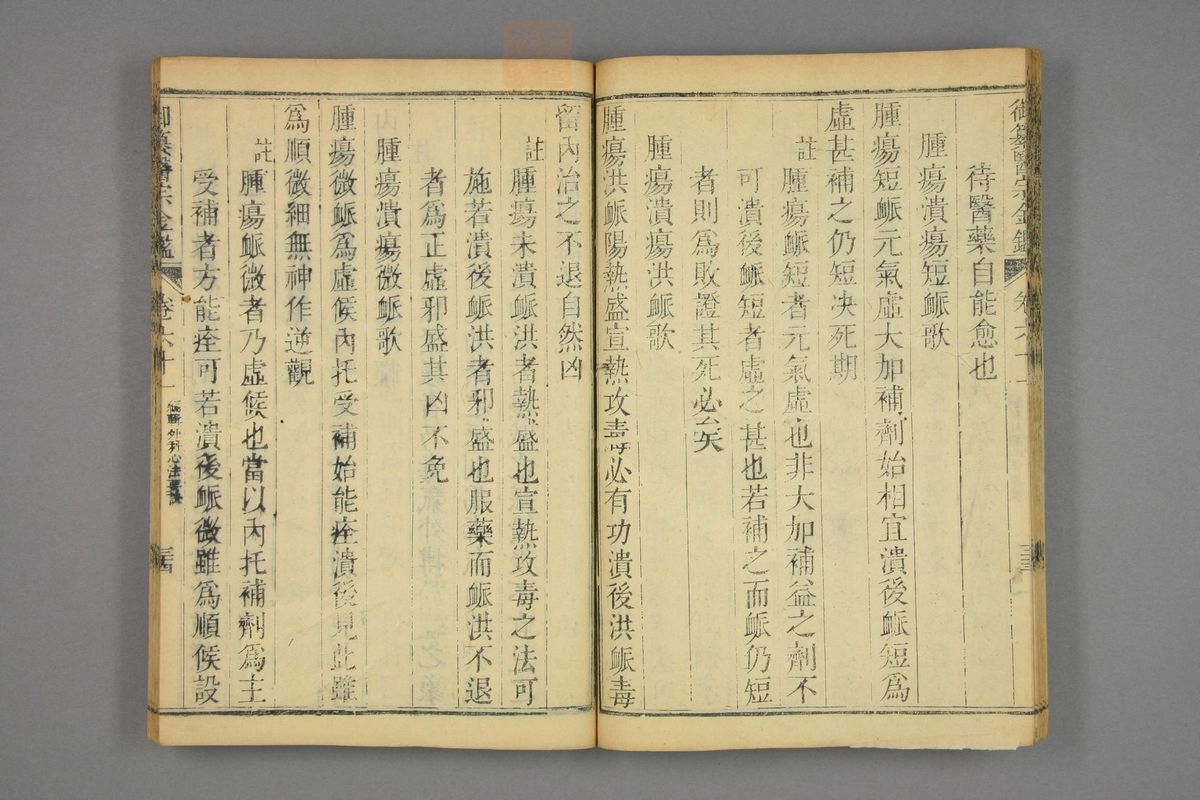 御纂醫宗金鑑 卷六十一 三十三
待醫藥自能愈也
腫瘍潰瘍短脈歌
腫瘍短脈元氣虛大加補劑始相宜潰後脈短爲
虛甚補之仍短决死期
註腫瘍脈短者元氣虛也非大加補益之劑不
可潰後脈短者虛之甚也若補之而脈仍短
者則爲敗證其死必矣
腫瘍潰瘍洪脈歌
腫瘍洪脈陽熱盛宣熱攻毒必有功潰後洪脈毒
留內治之不退自然凶
註腫瘍未潰脈洪者熱盛也宣熱攻毒之法可
施若潰後脈洪者邪盛也服藥而脈洪不退
者爲正虛邪盛其凶不免
腫瘍潰瘍微脈歌
腫瘍微脈爲虛候內托受補始能痊潰後見此雖
爲順微細無神作逆觀
註腫瘍脈微者乃虛候也當以內托補劑爲主
受補者方能痊可若潰後脈微雖爲順候設
御纂醫宗金鑑 卷六十一 編輯外科心法要訣 三十四